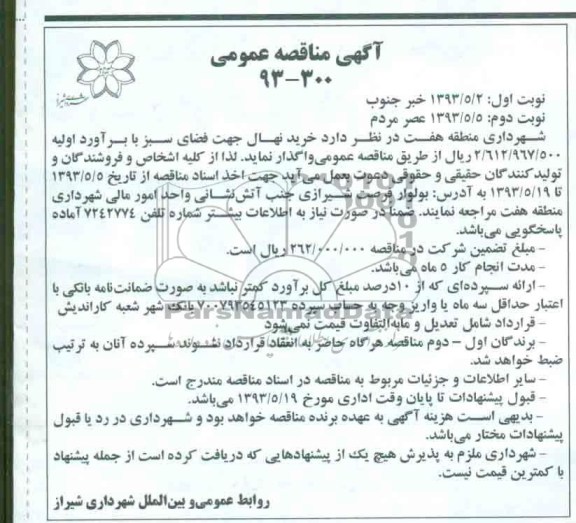 آگهی مناقصه عمومی
۹۳-۳۰۰
نوبت اول: ۱۳۹۳/۵/۲ خبر جنوب
نوبت دوم: ۱۳۹۳/۵/۵ عصر مردم
شهرداری منطقه هفت در نظر دارد خرید نهال جهت فضای سبز با برآورد اولیه
۲/۶۱۲/۹۶۷/۵۰۰ ریال از طریق مناقصه عمومی واگذار نماید. لذا از کلیه اشخاص و فروشندگان و
تولیدکنندگان حقیقی و حقوقی دعوت بعمل می‌آید جهت اخذ اسناد مناقصه از تاریخ ۱۳۹۳/۵/۵
تا ۱۳۹۳/۵/۱۹ به آدرس: بولوار شیرازی جنب آتش‌نشانی واحد امور مالی شهرداری
منطقه هفت مراجعه نمایند. ضمنا در صورت نیاز به اطلاعات بیشتر شماره تلفن ۷۲۴۲۷۷۴ آماده
پاسخگویی می‌باشد.
- مبلغ تضمین شرکت در مناقصه ۲۶۲/۰۰۰/۰۰۰ ریال است.
- مدت انجام کار ۵ ماه می‌باشد.
- ارائه سپرده‌ای که از ۱۰درصد مبلغ کل برآورد کمتر نباشد به صورت ضمانت‌نامه بانکی با
اعتبار حداقل سه ماه یا واریز وجه به حساب سپرده بانک شهر شعبه کاراندیش
- قرارداد شامل تعدیل و مابه‌التفاوت قیمت نمی‌شود
- برندگان اول - دوم مناقصه هرگاه حاضر به انعقاد قرارداد نشوند سپرده آنان به ترتیب
ضبط خواهد شد.
- سایر اطلاعات و جزئیات مربوط به مناقصه در اسناد مناقصه مندرج است.
- قبول پیشنهادات تا پایان وقت اداری مورخ ۱۳۹۳/۵/۱۹ می‌باشد.
- بدیهی است هزینه آگهی به عهده برنده مناقصه خواهد بود و شهرداری در رد یا قبول
پیشنهادات مختار می‌باشد.
- شهرداری ملزم به پذیرش هیچ یک از پیشنهادهایی که دریافت کرده است از جمله پیشنهاد
با کمترین قیمت نیست.
روابط عمومی و بین‌الملل شهرداری شیراز
ParsNamadData